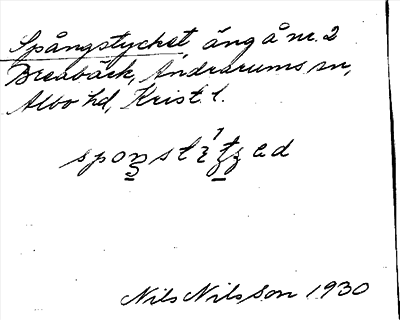 Spångstycket, äng å nr. 2
Breabäck, Andrarums sn,
Albo hd, Krist. l.
Nils Nilsson 1930